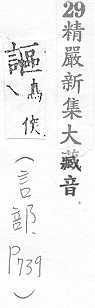 29精嚴新集大藏音
謳
烏侯
(言部
P739)